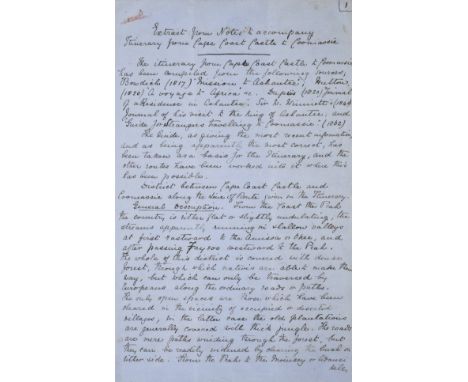 1
Extract from Notes to accompany
Itinerary from Cape Coast Castle to Coomassie
The itinerary from Cape Coast Castle to Coomassie
has been compiled from the following sources,
Bowdich (1817) "Mission to Ashantee", Hutton
(1820) "A voyage to Africa" &c. Dupuis (1820) "Journal
of a Residence in Ashantee", Sir W. Winniett (1848)
Journal of his visit to the King of Ashantee, and
Guide for Strangers travelling to Coomassie" (1862)
The Guide, as giving the most recent information
and as being apparently the most correct, has
been taken as a basis for the Itinerary, and the
other routes have been worked into it when this
has been possible.
District between Cape Coast Castle and
Coomassie along the line of Route given in the Itinerary.
General description. From the Coast to the Prah
the country is either flat or slightly undulating, the
streams apparently running in shallow valleys
at first eastward to the Amissa or Okee, and
after passing Faysoo westward to the Prah.
The whole of this district is covered with dense
forest, through which natives are able to make their
way, but which can only be traversed by
Europeans along the ordinary roads or paths.
The only open spaces are those which have been
cleared in the vicinity of occupied or deserted
villages; in the latter case the old plantations
are generally covered with thick jungle. The roads
are mere paths winding through the forest, but
they can be readily widened by clearing the bush on
either side. From the Prah to the Moinsey or Adansi